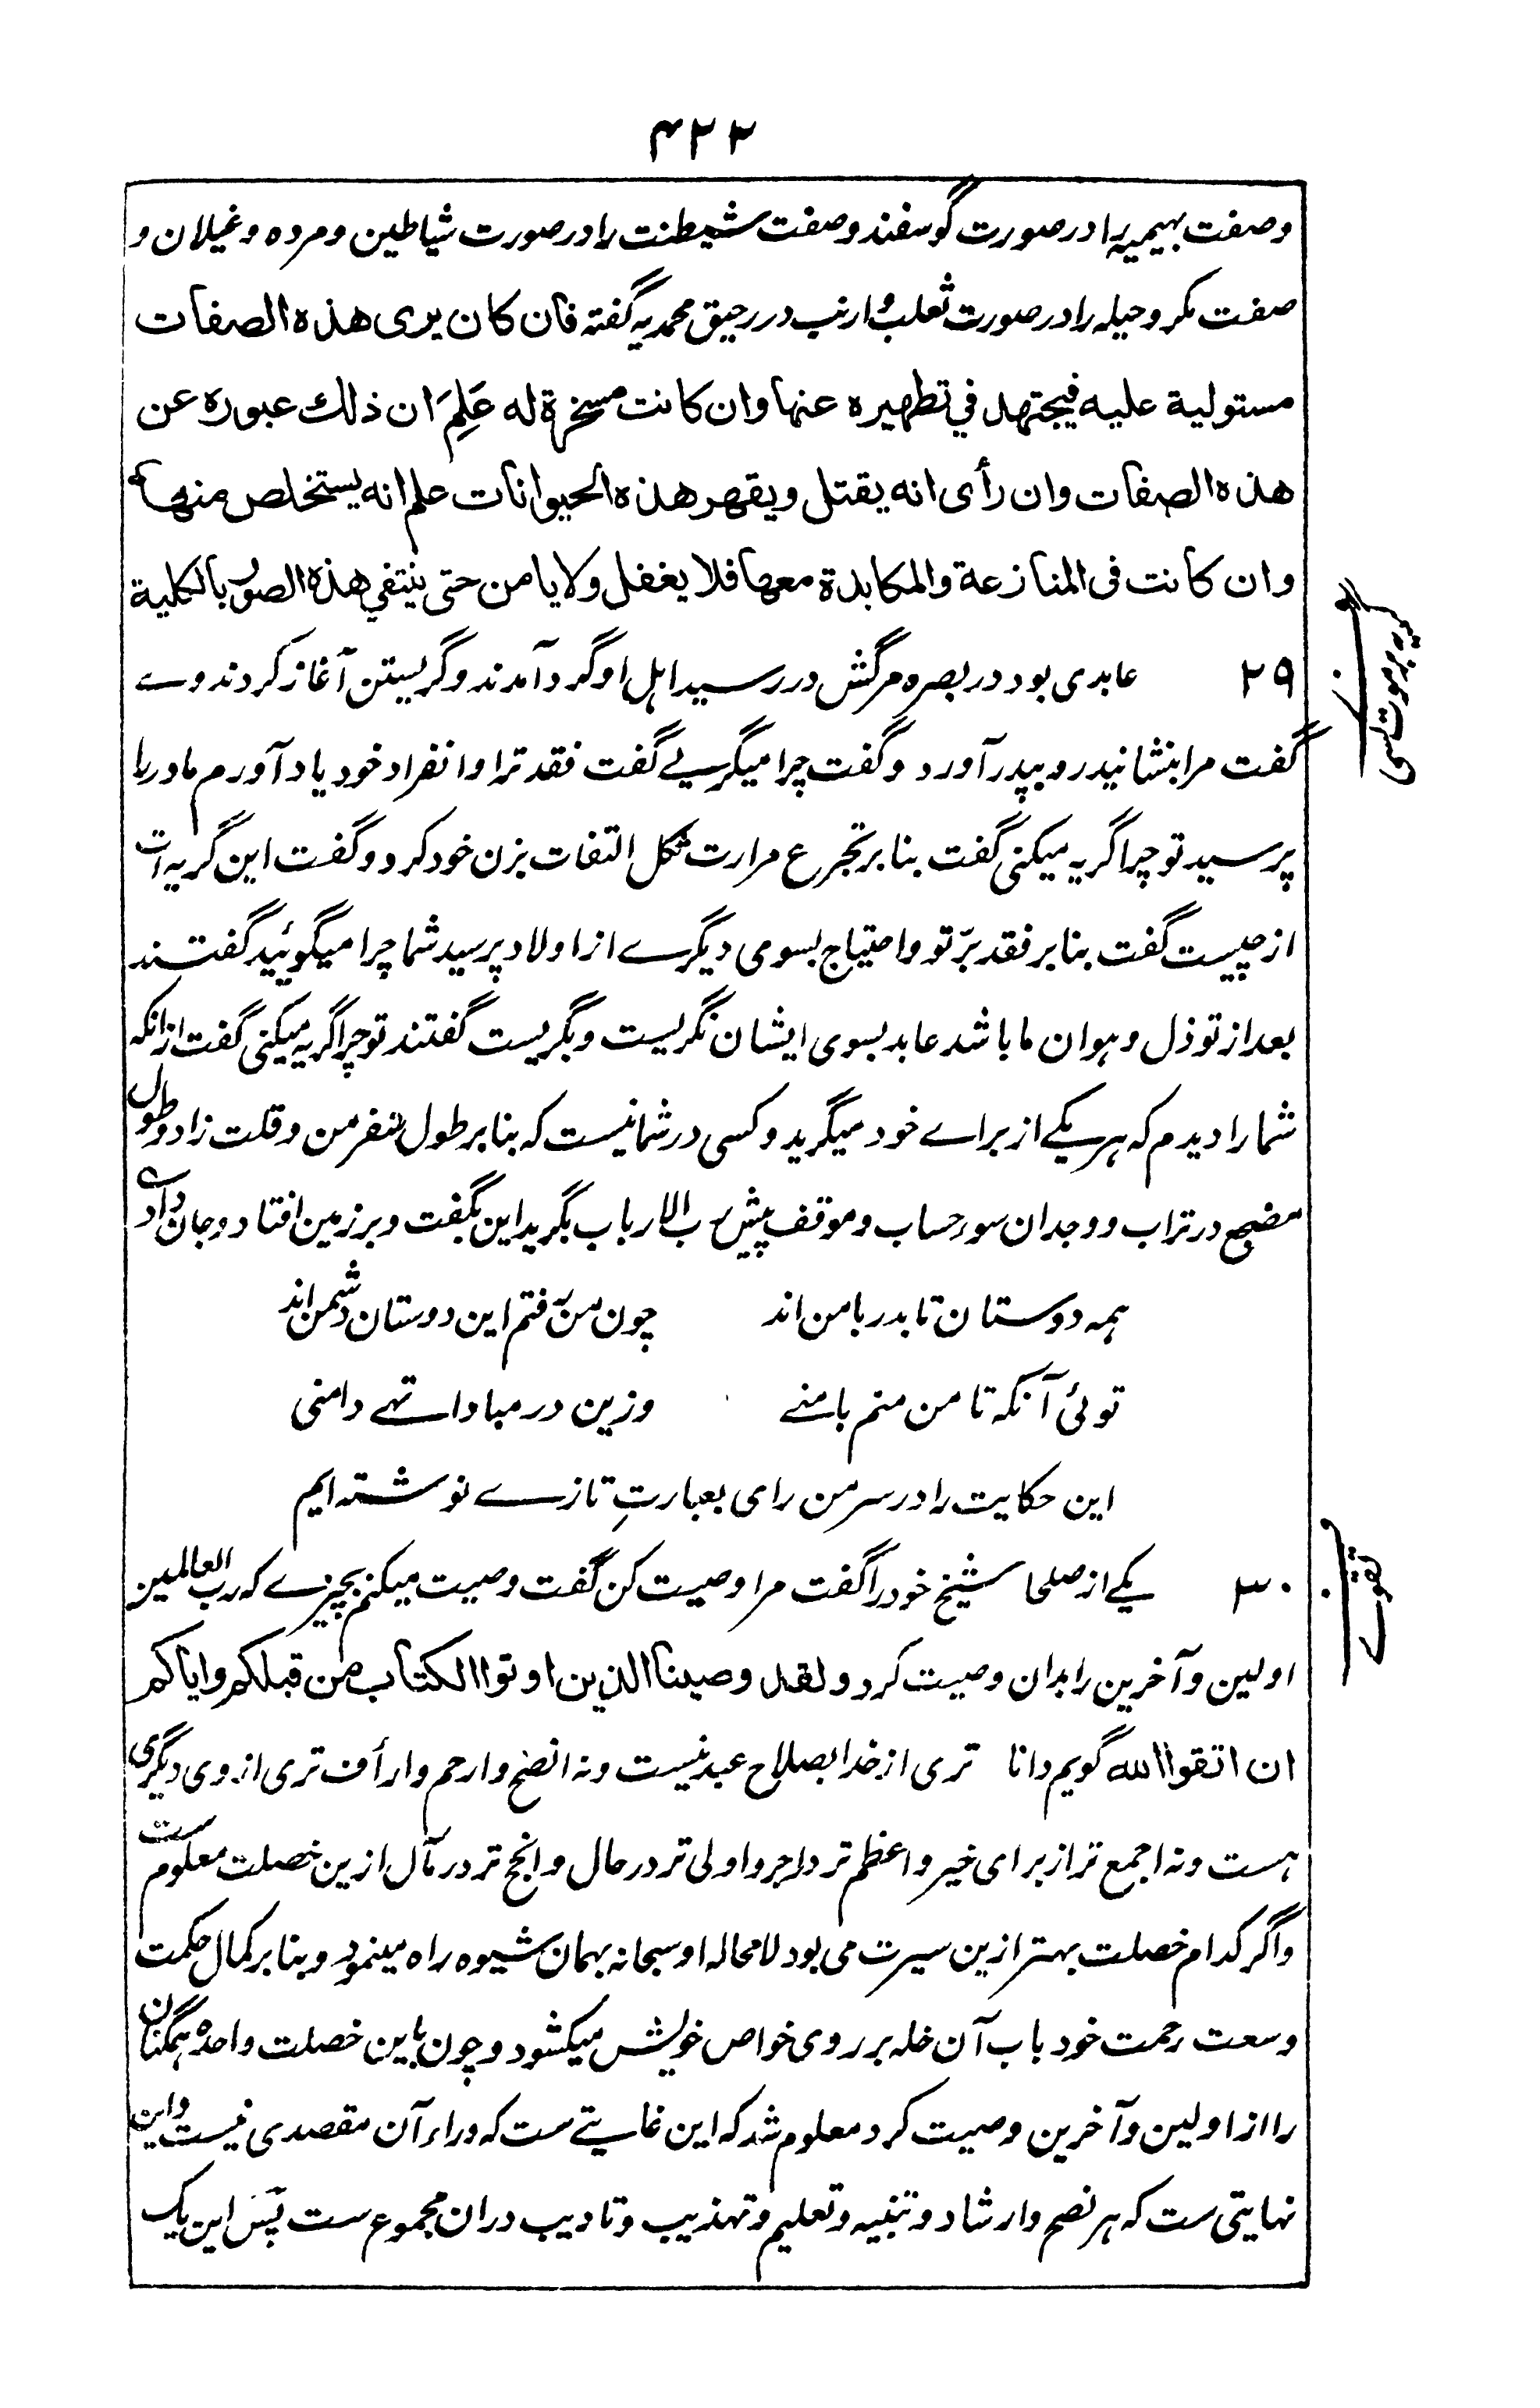 ۴۲۳
وصفت بهیمیه را در صورت گوسفند وصفت شیطنت را در صورت شیاطین و مرده و غیلان و
صفت مکر وحیله را در صورت ثعلب و ارنب در رحیق محمدیه گفته فان کان یری هذه الصفات
مستولیة علیه فیجتهد فی تطهیره عنها وان کانت مسخرة له عَلِمَ ان ذلك عبوره عن
هذه الصفات وان رأی انه یقتل ویقهر هذه الحیوانات علم انه یستخلص منها
وان کانت فی المنازعة والمکابدة معها فلا یغفل ولا یامن حتی ینتفی هذه الصور بالکلیة
۲۹ عابدی بود در بصره مرگش در رسید اهل او گرد آمدند و گریستن آغاز کردند وے
گفت مرا بنشانید رو بپدر آورد و گفت چرا میگریی گفت فقد ترا و انفراد خود یاد آورم مادر را
پرسید تو چرا گریه میکنی گفت بنا بر تجرع مرارت ثکل التفات بزن خود کرد و گفت این گریه ات
از چیست گفت بنا بر فقد برّ تو و احتیاج بسوی دیگرے از اولاد پرسید شما چرا میگوئید گفتند
بعد از تو ذل و هوان ما باشد عابد بسوی ایشان نگریست و بگریست گفتند تو چرا گریه میکنی گفت ازانکه
شما را دیدم که هر یکے از براے خود میگرید و کسی در شما نیست که بنا بر طول سفر من و قلت زاد و طول
مضجع در تراب و وجدان سوء حساب و موقف پیش رب الارباب بگرید این بگفت و بر زمین افتاد و جان داد
همه دوستان تا بدر با من اند چون من رفتم این دوستان دشمن اند
توئی آنکه تا من منم با منے وزین در مبادا تهے دامنی
این حکایت را در سر من رای بعبارتِ تازے نوشته ایم
۳۰ یکے از صلحا شیخ خود را گفت مرا وصیت کن گفت وصیت میکنم بچیزے که رب العالمین
اولین و آخرین را بدان وصیت کرد ولقد وصینا الذین اوتوا الکتاب من قبلکم وایاکم
ان اتقوا الله گویم دانا تری از خدا بصلاح عبد نیست و نه انصح و ارحم و ارأف تری از وی دیگری
هست و نه اجمع تر از برای خیر و اعظم تر در اجر و اولی تر در حال و انجح تر در مآل ازین خصلت معلوم ست
و اگر کدام خصلت بهتر ازین سیرت می بود لا محاله او سبحانه بهمان شیوه راه مینمود و بنا بر کمال حکمت
وسعت رحمت خود باب آن خله بر روی خواص خویش میکشود و چون باین خصلت واحده همگنان
را از اولین و آخرین وصیت کرد معلوم شد که این غایتے ست که وراء آن مقصدی نیست و این
نهایتی ست که هر نصح و ارشاد و تنبیه و تعلیم و تهذیب و تادیب دران مجموع ست پس این یک
گریه بر موت کسی
تقوے